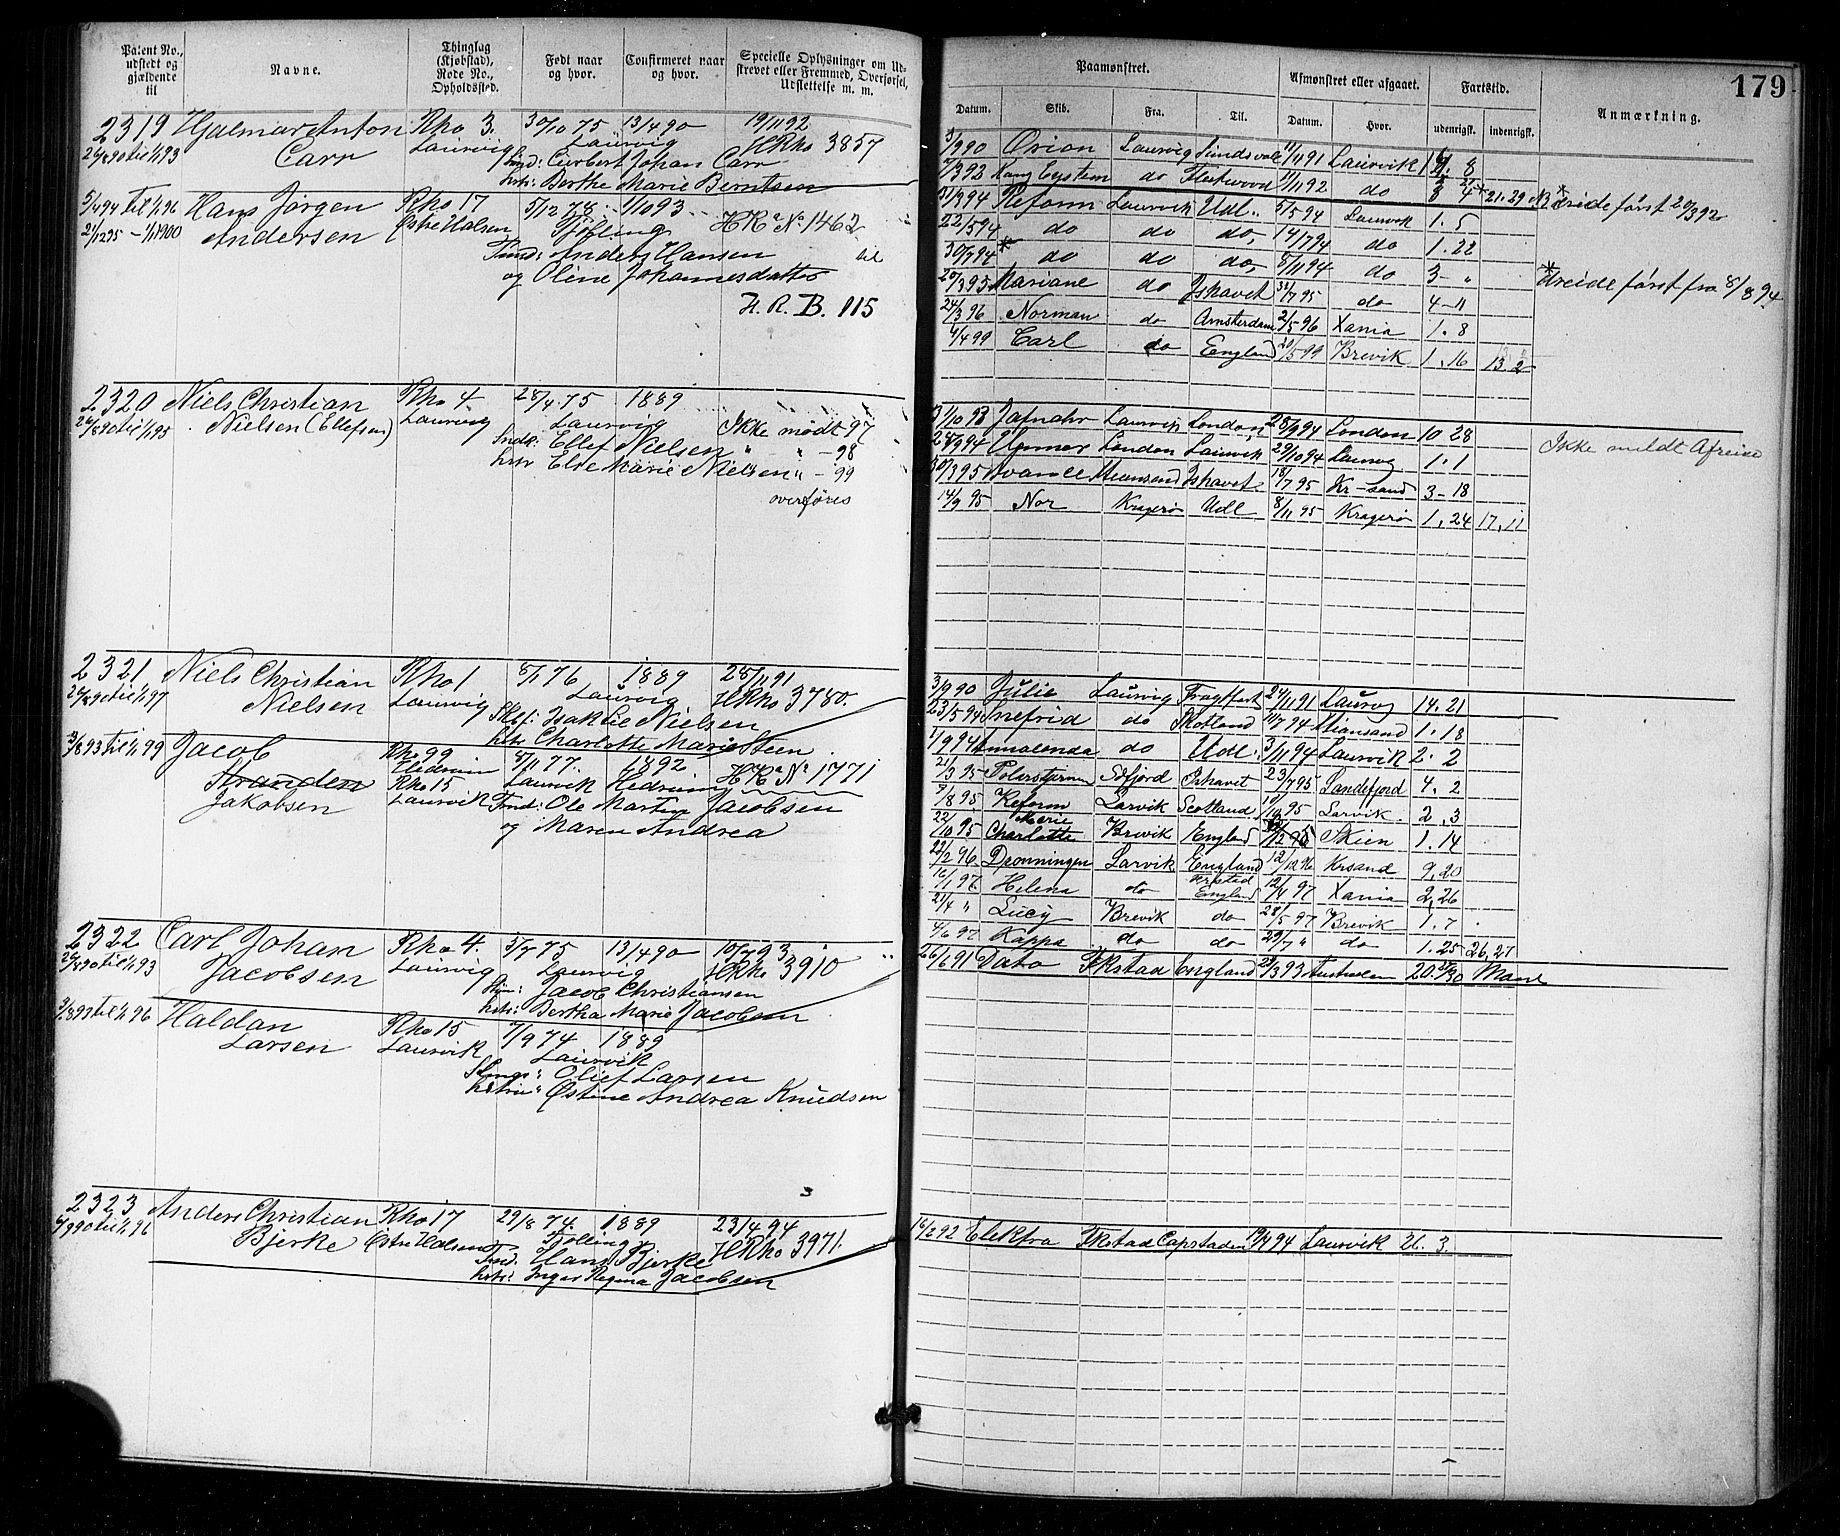 Patent No., udstedt og gjældende til
Navne.
Thinglag (Kjøbstad), Rode No., Opholdssted.
Født naar og hvor.
Confirmeret naar og hvor.
Specielle Oplysninger om Udstrevet eller Fremmed, Overførsel, Udslettelse m. m.
2319 Hjalmar Anton Rho 3. 30/10 75 13/4 90 19/11 92
26/8 90 til 1/1 93 Carr Laurvig Laurvig HRho 3857
Curbert Johan Carr
Berthe Marie Berntsen
5/4 94 til 1/1 96 Hans Jørgen Rho 17 5/12 78 1/10 93
21/12 95 – 1/1 1900 Andersen Østre Halsen Tjølling HRa No 1462
Fmd: Anders Hansen til
og Oline Johannesdatter
H. R. B. 115
2320 Niels Christian Rho 4 28/4 75 1889
26/8 90 til 1/1 95 Nielsen (Ellefsen) Laurvig Laurvig Ikke mødt 97
Ellef Nielsen " " – 98
Else Marie Nielsen " – 99
overføres
2321 Niels Christian Rho 1 8/1 76 1889 28/11 91
26/8 90 til 1/1 97 Nielsen Laurvig Laurvig HRho 3780.
Isak Lie Nielsen
Charlotte Marie Steen
3/8 93 til 1/1 99 Jacob Rho 99 8/11 77. 1892 HRa No 1771
Stranden Hedrum Laurvik Hedrum
Jakobsen Rho 15 Laurvik Fmd: Ole Martin Jacobsen
og Maren Andrea
2322 Carl Johan Rho 4. 3/7 75 13/4 90 10/7 93
26/8 90 til 1/1 93 Jacobsen Laurvig Laurvig HRho 3910
Jacob Christiansen
Bertha Marie Jacobsen
3/8 93 til 1/1 96 Haldan Rho 15 7/9 74 1889
Larsen Laurvik Laurvik
Olief Larsen
Østine Andrea Knudsen
2323 Anders Christian Rho 17 29/8 74. 1889 23/4 94
4/9 90 til 1/1 96 Bjerke Østre Halsen Tjølling HRho 3971.
Fmd. Hans Bjerke
Inger Regina Jacobsen
179
Paamønstret.
Afmønstret eller afgaaet.
Fartstid.
Anmærkning.
Datum. Skib. Fra. Til. Datum. Hvor. udenrigst. indenrigst.
3/9 90 Orion Laurvig Sundsvall 11/11 91 Laurvik 14. 8
7/3 92 Kong Eystein do Fleetwood 11/11 92 do 21. 29 Hreide først 20/3 92
31/3 94 Reform Laurvik Udl. 5/5 94 Laurvik 1. 5
22/5 94 do do do, 14/7 94 do 1. 22
30/7 94* do do do, 8/11 94 do 3 – " *Hreide først fra 8/8 94
20/3 95 Mariane do Ishavet 31/7 95 do 4 – 11
24/3 96 Norman do Amsterdam 2/5 96 Xania 1. 8
4/4 99 Carl do England 20/5 99 Brevik 1. 16 13. 2
31/10 93 Jafnahr Laurvik London 28/9 94 London 10 28
28/9 94 Unner London Laurvik 29/10 94 Laurvig 1. 1 Ikke meldt Afreise
30/3 95 Ishavet 18/7 95 Kr–sand 3 – 18
14/9 95 Nor Kragerø Udl 8/11 95 Kragerø 1. 24 17. 11
3/9 90 Julie Laurvig 24/11 91 Laurvig 14. 21
23/5 94 Snefrid do Skotland 10/7 94 Stiansand 1. 18
1/9 94 Annalenda do Udl. 3/11 94 Laurvik 2. 2
21/3 95 Polarstjernen Sdfjord Ishavet 23/7 95 Sandefjord 4. 2
8/8 95 Reform Larvik Scotland 11/10 95 Larvik 2. 3
22/10 95 Marie Charlotte Brevik England Skien 1. 14
22/2 96 Dronningen Larvik England 12/12 96 Krsand 9. 20
16/1 97 Helena do Frstad England 12/4 97 Xania 2, 26
21/4 " Lucy Brevik do 28/5 97 Brevik 1. 7
4/6 97 Kappa do do 29/7 " do 1. 25 26, 27
26/6 91 Dato Fkstad England 25/3 93 Australien 20. 30
16/2 92 Elektra Fkstad Capstaden 19/4 94 Laurvik 26. 3.